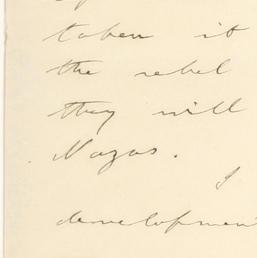 taken it
the rebel
they will
Nazas.
I
developmen